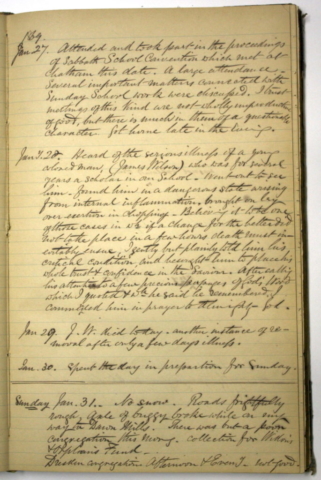 189
Jan 27. Attended and took part in the proceedings
of Sabbath School Convention which met at
Chatham this date. A large attendance.
Several important matters connected with
Sunday School work were discussed. I trust
meetings of this kind are not wholly unproductive
of good, but there is much in them of a questionable
character. Got home late in the evening.
Jan. 28. Heard of the serious illness of a young
man, (James Wilson) who was for several
years a scholar in our School. Went out to see
him. Found him in a dangerous state arising
from internal inflammation, brought on by
over exertion in chopping. Believing it to be one
of those cases in which if a change for the better did
not take place in a few hours death must in-
evitably ensue. I gently but plainly told him his
critical condition and besought him to place his
whole trust & confidence in the Saviour. After calling
his attention to a few precious passages of God's Word
which I quoted & which he said he remembered, I
committed him in prayer to God.
Jan 29. J. W. died today - another instance of re-
moval after only a few days illness.
Jan. 30. Spent the day in preparation for Sunday.
Sunday Jan. 31. - No snow. Roads frightfully
rough, axle of buggy broke while on my
way to Dawn Mills. There was but a poor
congregation this morng. Collection for Widows
& Orphans Fund.
Dresden congregation Afternoon & Eveng. - not good.